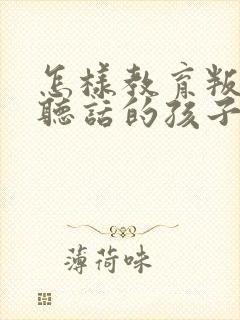 怎样教育叛
聽話的孩子
薄荷味